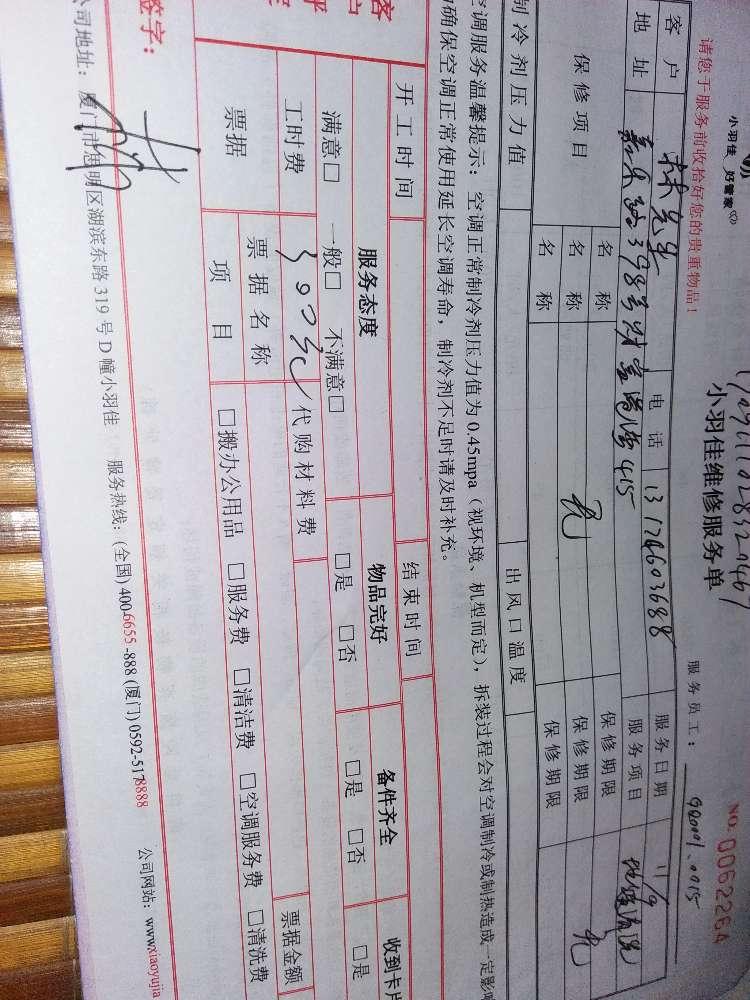 小羽佳 好管家
小羽佳维修服务单
NO. 0062264
请您于服务前收拾好您的贵重物品!
服务员工:
客户 林先生 电话 13174603688 服务日期 11/9
地址 嘉禾路398号财富港湾415 服务项目 地毯清洗
保修项目 名称 保修期限
名称 无 保修期限 无
名称 保修期限
制冷剂压力值 出风口温度
空调服务温馨提示:空调正常制冷剂压力值为0.45mpa(视环境、机型而定),拆装过程会对空调制冷或制热造成一定影响
确保空调正常使用延长空调寿命,制冷剂不足时请及时补充。
开工时间 结束时间
服务态度 物品完好 备件齐全 收到卡片
满意□ 一般□ 不满意□ □是 □否 □是 □否 □是
工时费 300元 代购材料费
票据 票据名称 票据金额
项目 □搬办公用品 □服务费 □清洁费 □空调服务费 □清洗费
签字:
公司地址:厦门市思明区湖滨东路319号D幢小羽佳 服务热线:(全国)400-6655-888 (厦门)0592-5178888 公司网站:www.xiaoyujia